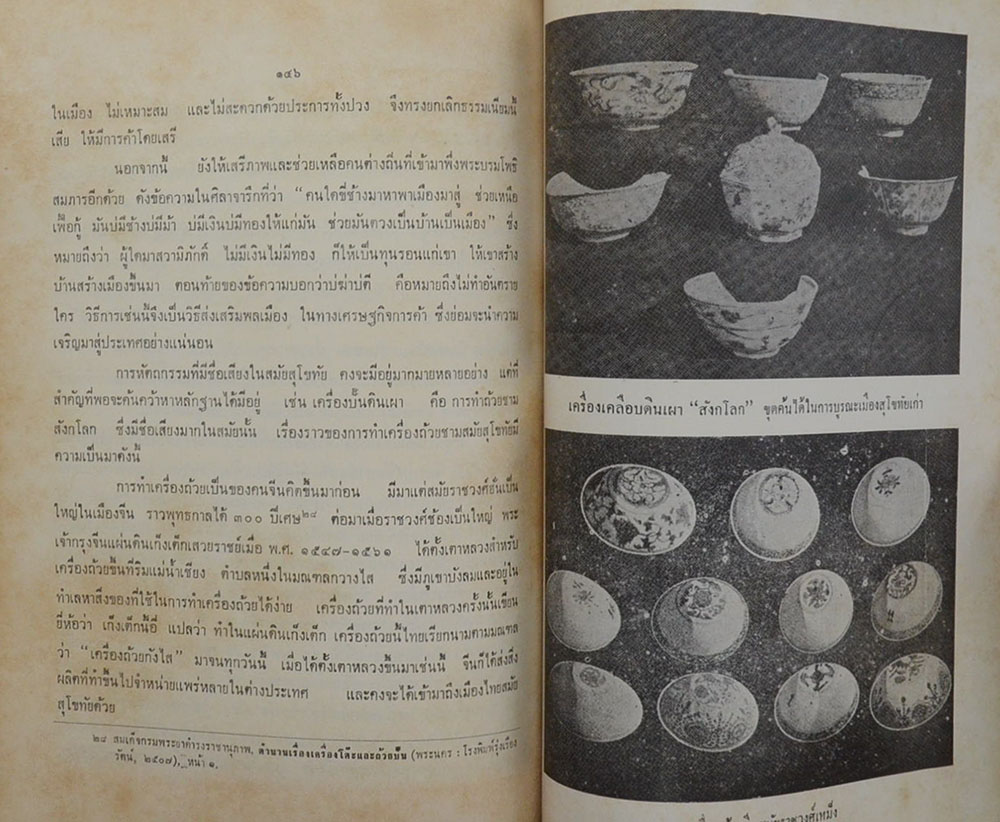 ๑๔๖
ในเมือง ไม่เหมาะสม และไม่สะดวกด้วยประการทั้งปวง จึงทรงยกเลิกธรรมเนียมนี้
เสีย ให้มีการค้าโดยเสรี
นอกจากนี้ ยังให้เสรีภาพและช่วยเหลือคนต่างถิ่นที่เข้ามาพึ่งพระบรมโพธิ
สมภารอีกด้วย ดังข้อความในศิลาจารึกที่ว่า “คนใดขี่ช้างมาหาพาเมืองมาสู่ ช่วยเหนือ
เฟื้อกู้ มันบ่มีช้างบ่มีม้า บ่มีเงินบ่มีทองให้แก่มัน ช่วยมันตวงเป็นบ้านเป็นเมือง” ซึ่ง
หมายถึงว่า ผู้ใดมาสวามิภักดิ์ ไม่มีเงินไม่มีทอง ก็ให้เป็นทุนรอนแก่เขา ให้เขาสร้าง
บ้านสร้างเมืองขึ้นมา ตอนท้ายของข้อความบอกว่าบ่ฆ่าบ่ตี คือหมายถึงไม่ทำอันตราย
ใคร วิธีการเช่นนี้จึงเป็นวิธีส่งเสริมพลเมือง ในทางเศรษฐกิจการค้า ซึ่งย่อมจะนำความ
เจริญมาสู่ประเทศอย่างแน่นอน
การหัตถกรรมที่มีชื่อเสียงในสมัยสุโขทัย คงจะมีอยู่มากมายหลายอย่าง แต่ที่
สำคัญที่พอจะค้นคว้าหาหลักฐานได้มีอยู่ เช่น เครื่องปั้นดินเผา คือ การทำถ้วยชาม
สังกโลก ซึ่งมีชื่อเสียงมากในสมัยนั้น เรื่องราวของการทำเครื่องถ้วยชามสมัยสุโขทัยมี
ความเป็นมาดังนี้
การทำเครื่องถ้วยเป็นของคนจีนคิดขึ้นมาก่อน มีมาแต่สมัยราชวงศ์ฮั่นเป็น
ใหญ่ในเมืองจีน ราวพุทธกาลได้ ๓๐๐ ปีเศษ๒๘ ต่อมาเมื่อราชวงศ์ซ้องเป็นใหญ่ พระ
เจ้ากรุงจีนแผ่นดินเก็งเต็กเสวยราชย์เมื่อ พ.ศ. ๑๕๔๗-๑๕๖๑ ได้ตั้งเตาหลวงสำหรับ
เครื่องถ้วยขึ้นที่ริมแม่น้ำเชียง ตำบลหนึ่งในมณฑลกวางไส ซึ่งมีภูเขาบังลมและอยู่ใน
ทำเลหาสิ่งของที่ใช้ในการทำเครื่องถ้วยได้ง่าย เครื่องถ้วยที่ทำในเตาหลวงครั้งนั้นเขียน
ยี่ห้อว่า เก็งเต็กนี้อี้ แปลว่า ทำในแผ่นดินเก็งเต็ก เครื่องถ้วยนี้ไทยเรียกนามตามมณฑล
ว่า “เครื่องถ้วยกังไส” มาจนทุกวันนี้ เมื่อได้ตั้งเตาหลวงขึ้นมาเช่นนี้ จีนก็ได้ส่งสิ่ง
ผลิตที่ทำขึ้นไปจำหน่ายแพร่หลายในต่างประเทศ และคงจะได้เข้ามาถึงเมืองไทยสมัย
สุโขทัยด้วย
๒๘ สมเด็จกรมพระยาดำรงราชานุภาพ, ตำนานเรื่องเครื่องโต๊ะและถ้วยปั้น (พระนคร : โรงพิมพ์รุ่งเรือง
รัตน์, ๒๕๐๗), หน้า ๑.
เครื่องเคลือบดินเผา “สังกโลก” ขุดค้นได้ในการบูรณะเมืองสุโขทัยเก่า
ราชวงศ์เหม็ง